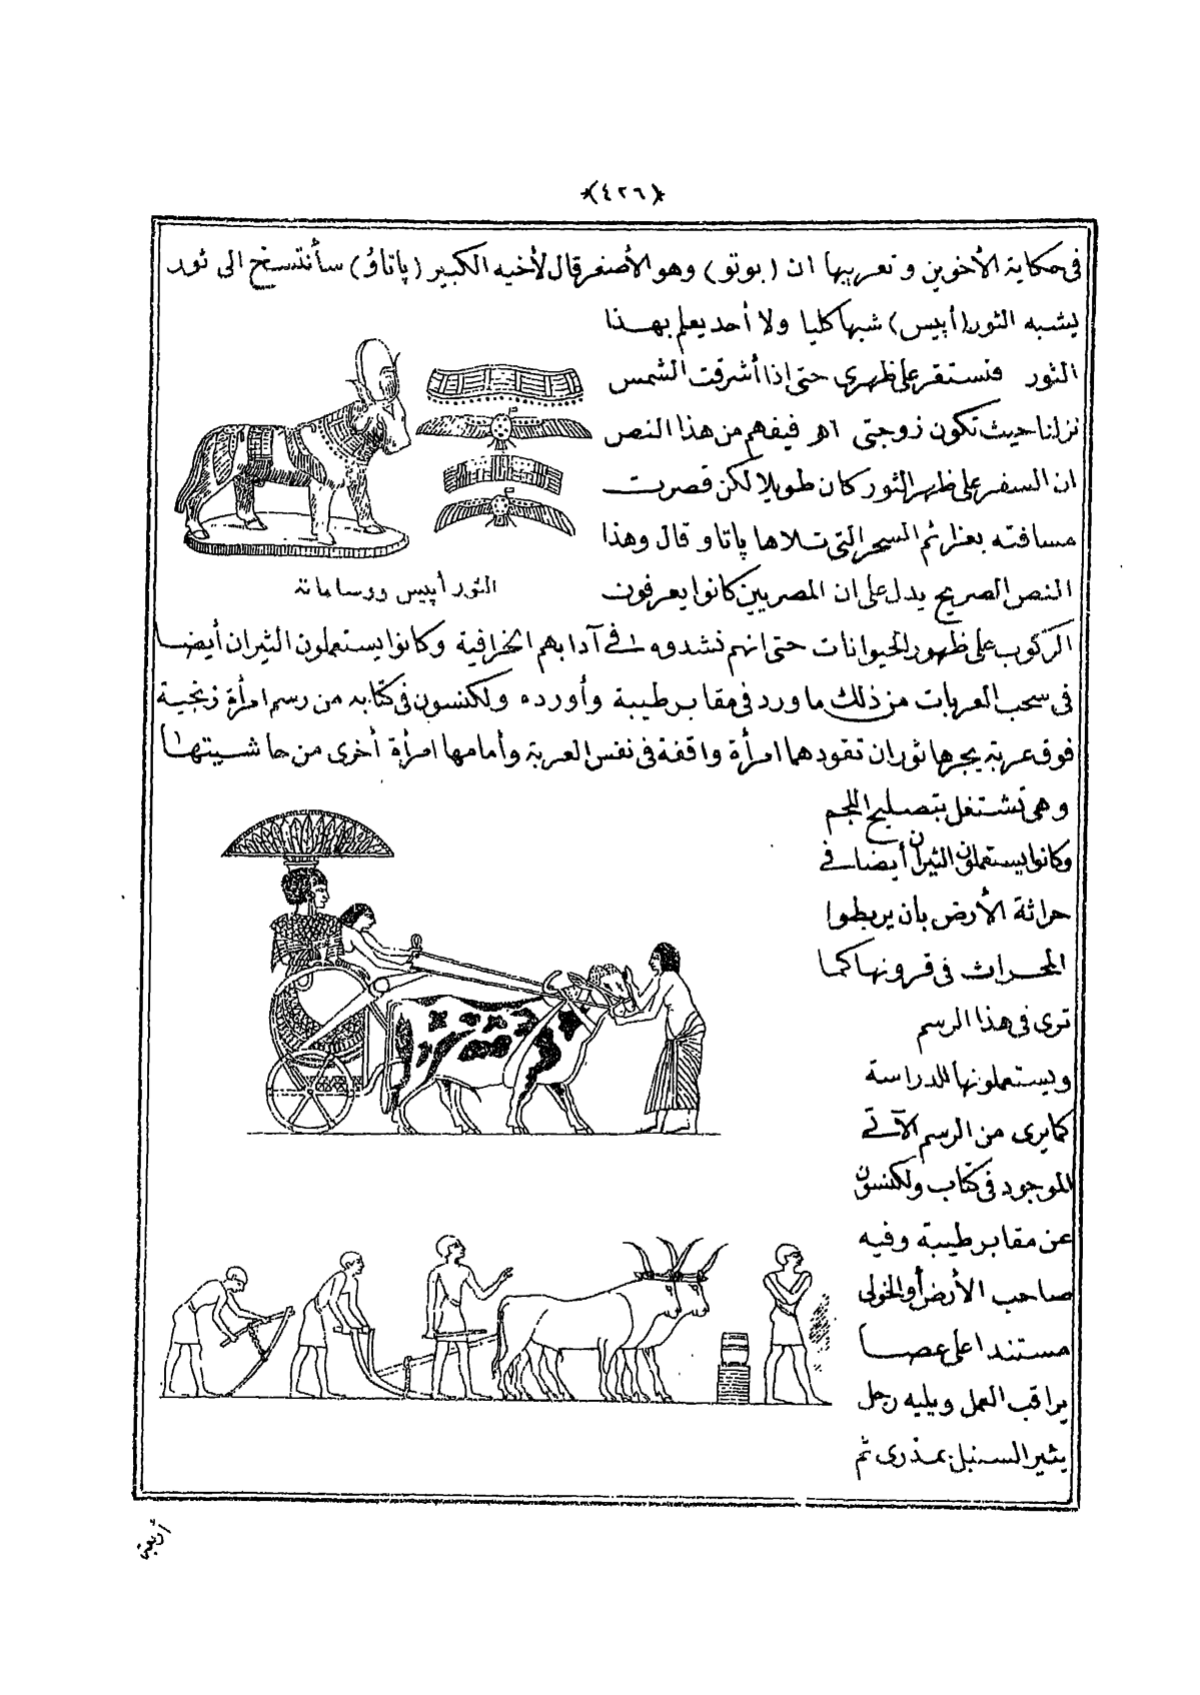 ﴿٤٢٦﴾
فى حكاية الأخوين وتعريبها ان (بوتو) وهو الأصغر قال لأخيه الكبير (پاتاؤ) سأنتسخ الى ثور
يشبه الثور (أپيس) شبها كليا ولا أحد يعلم بهذا
الثور فنستقر على ظهرى حتى اذا أشرقت الشمس
نزلنا حيث تكون زوجتى اهـ فيفهم من هذا النص
ان السفر على ظهر الثور كان طويلا لكن قصرت
مسافته بعزائم السحر التى تلاها پاتاو قال وهذا
النص الصريح يدل على ان المصريين كانوا يعرفون
الثور أپيس ووساماته
الركوب على ظهور الحيوانات حتى انهم فى آدابهم الخرافية وكانوا يستعملون الثيران أيضا
فى سحب العربات من ذلك ما ورد فى مقابر طيبة وأورده ولكنسون فى كتابه من رسم امرأة زنجية
فوق عربة يجرها ثوران تقودهما امرأة واقفة فى نفس العربة وأمامها امرأة أخرى من حاشيتها
وهى تشتغل بتصليح اللجم
وكانوا يستعملون الثيران أيضا فى
حراثة الأرض بان يربطوا
المحراث فى قرونها كما
ترى فى هذا الرسم
ويستعملونها للدراسة
كما يرى من الرسم الآتى
الموجود فى كتاب ولكنسون
عن مقابر طيبة وفيه
صاحب الأرض أو الخولى
مستندا على عصا
يراقب العمل ويليه رجل
يثير السنبل بمذرى ثم